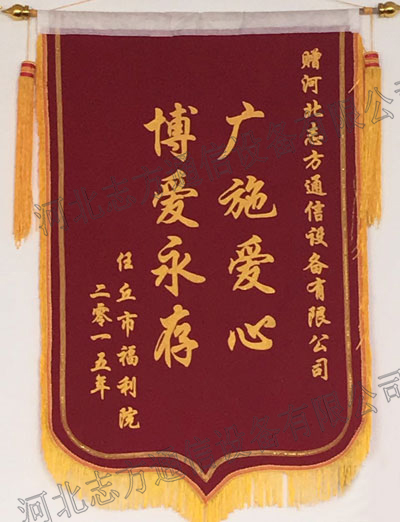 赠河北志方通信设备有限公司
广施爱心
博爱永存
任丘市福利院
二零一五年
河北志方通信设备有限公司
河北志方通信设备有限公司